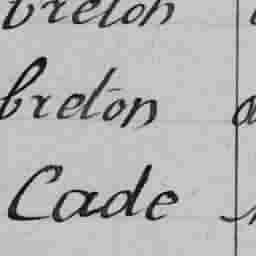 breton
breton
Cade